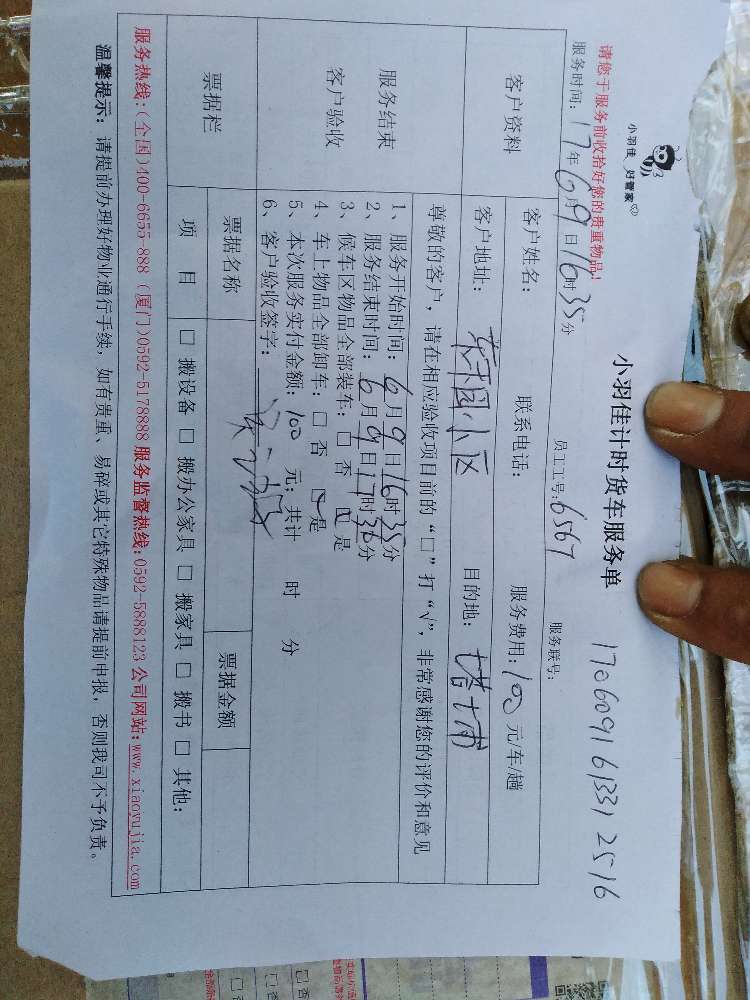 小羽佳 好管家
小羽佳计时货车服务单
1706091613312516
请您于服务前收拾好您的贵重物品!
服务时间: 17年6月9日16时35分
员工工号: 6567
服务联号:
客户资料
客户姓名:
联系电话:
服务费用: 100 元/车/趟
客户地址:
小区
目的地:
尊敬的客户, 请在相应验收项目前的“□”打“√”, 非常感谢您的评价和意见
服务结束
客户验收
1、服务开始时间: 6月9日16时35分
2、服务结束时间: 6月9日17时36分
3、候车区物品全部装车: □ 否 □ 是
4、车上物品全部卸车: □ 否 □ 是
5、本次服务实付金额: 100 元; 共计 时 分
6、客户验收签字:
票据栏
票据名称
票据金额
项 目
□ 搬设备 □ 搬办公家具 □ 搬家具 □ 搬书 □ 其他:
服务热线: (全国)400-6655-888 (厦门)0592-5178888 服务监督热线: 0592-5888123 公司网站: www.xiaoyujia.com
温馨提示: 请提前办理好物业通行手续, 如有贵重、易碎或其它特殊物品请提前申报, 否则我司不予负责。